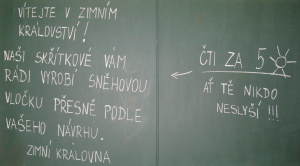 VÍTEJTE V ZIMNÍM
KRÁLOVSTVÍ!
NAŠI SKŘÍTKOVÉ VÁM
RÁDI VYROBÍ SNĚHOVOU
VLOČKU PŘESNĚ PODLE
VAŠEHO NÁVRHU.
ZIMNÍ KRÁLOVNA
ČTI ZA 5
AŤ TĚ NIKDO
NESLYŠÍ !!!